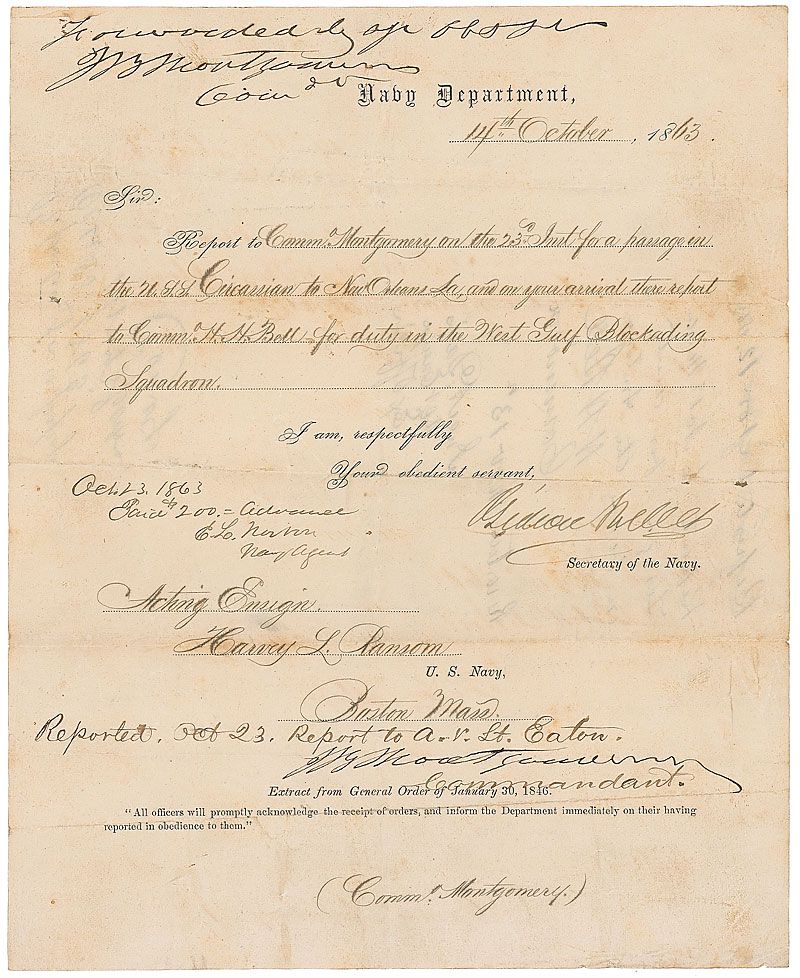 Forwarded by
JB Montgomery
Comdt
Navy Department,
14th October, 1863.
Sir:
Report to Commo. Montgomery on the 23d Inst for a passage in
the U.S.S. Circassian to New Orleans La, and on your arrival there report
to Commo. H. H. Bell for duty in the West Gulf Blockading
Squadron.
I am, respectfully
Your obedient servant,
Oct. 23. 1863
Paid $200.= Advance
E. L. Norton
Navy Agent
Gideon Welles
Secretary of the Navy.
Acting Ensign.
Harvey L. Ransom
U. S. Navy,
Boston Mass.
Reported. Oct 23. Report to A. V. Lt. Eaton.
JB Montgomery
Commandant.
Extract from General Order of January 30, 1846.
"All officers will promptly acknowledge the receipt of orders, and inform the Department immediately on their having
reported in obedience to them."
(Commo. Montgomery.)